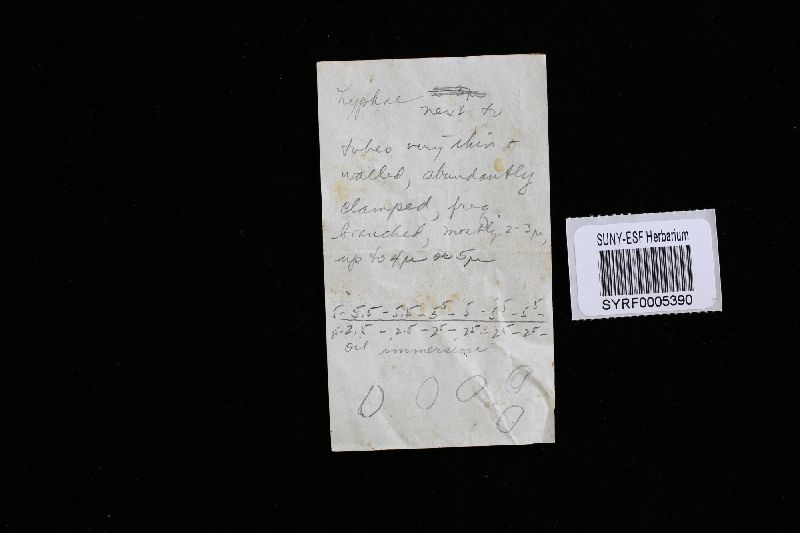 hyphae 2-3µ
next to
tubes very thin
walled, abundantly
clamped, freq
branched, mostly 2-3µ,
up to 4µ or 5µ
5-5.5-5.5-5⁵-5-5⁵-5⁵-
-2.5-2.5-2⁵-2⁵-2⁵-2⁵-
oil immersion
SUNY-ESF Herbarium
SYRF0005390